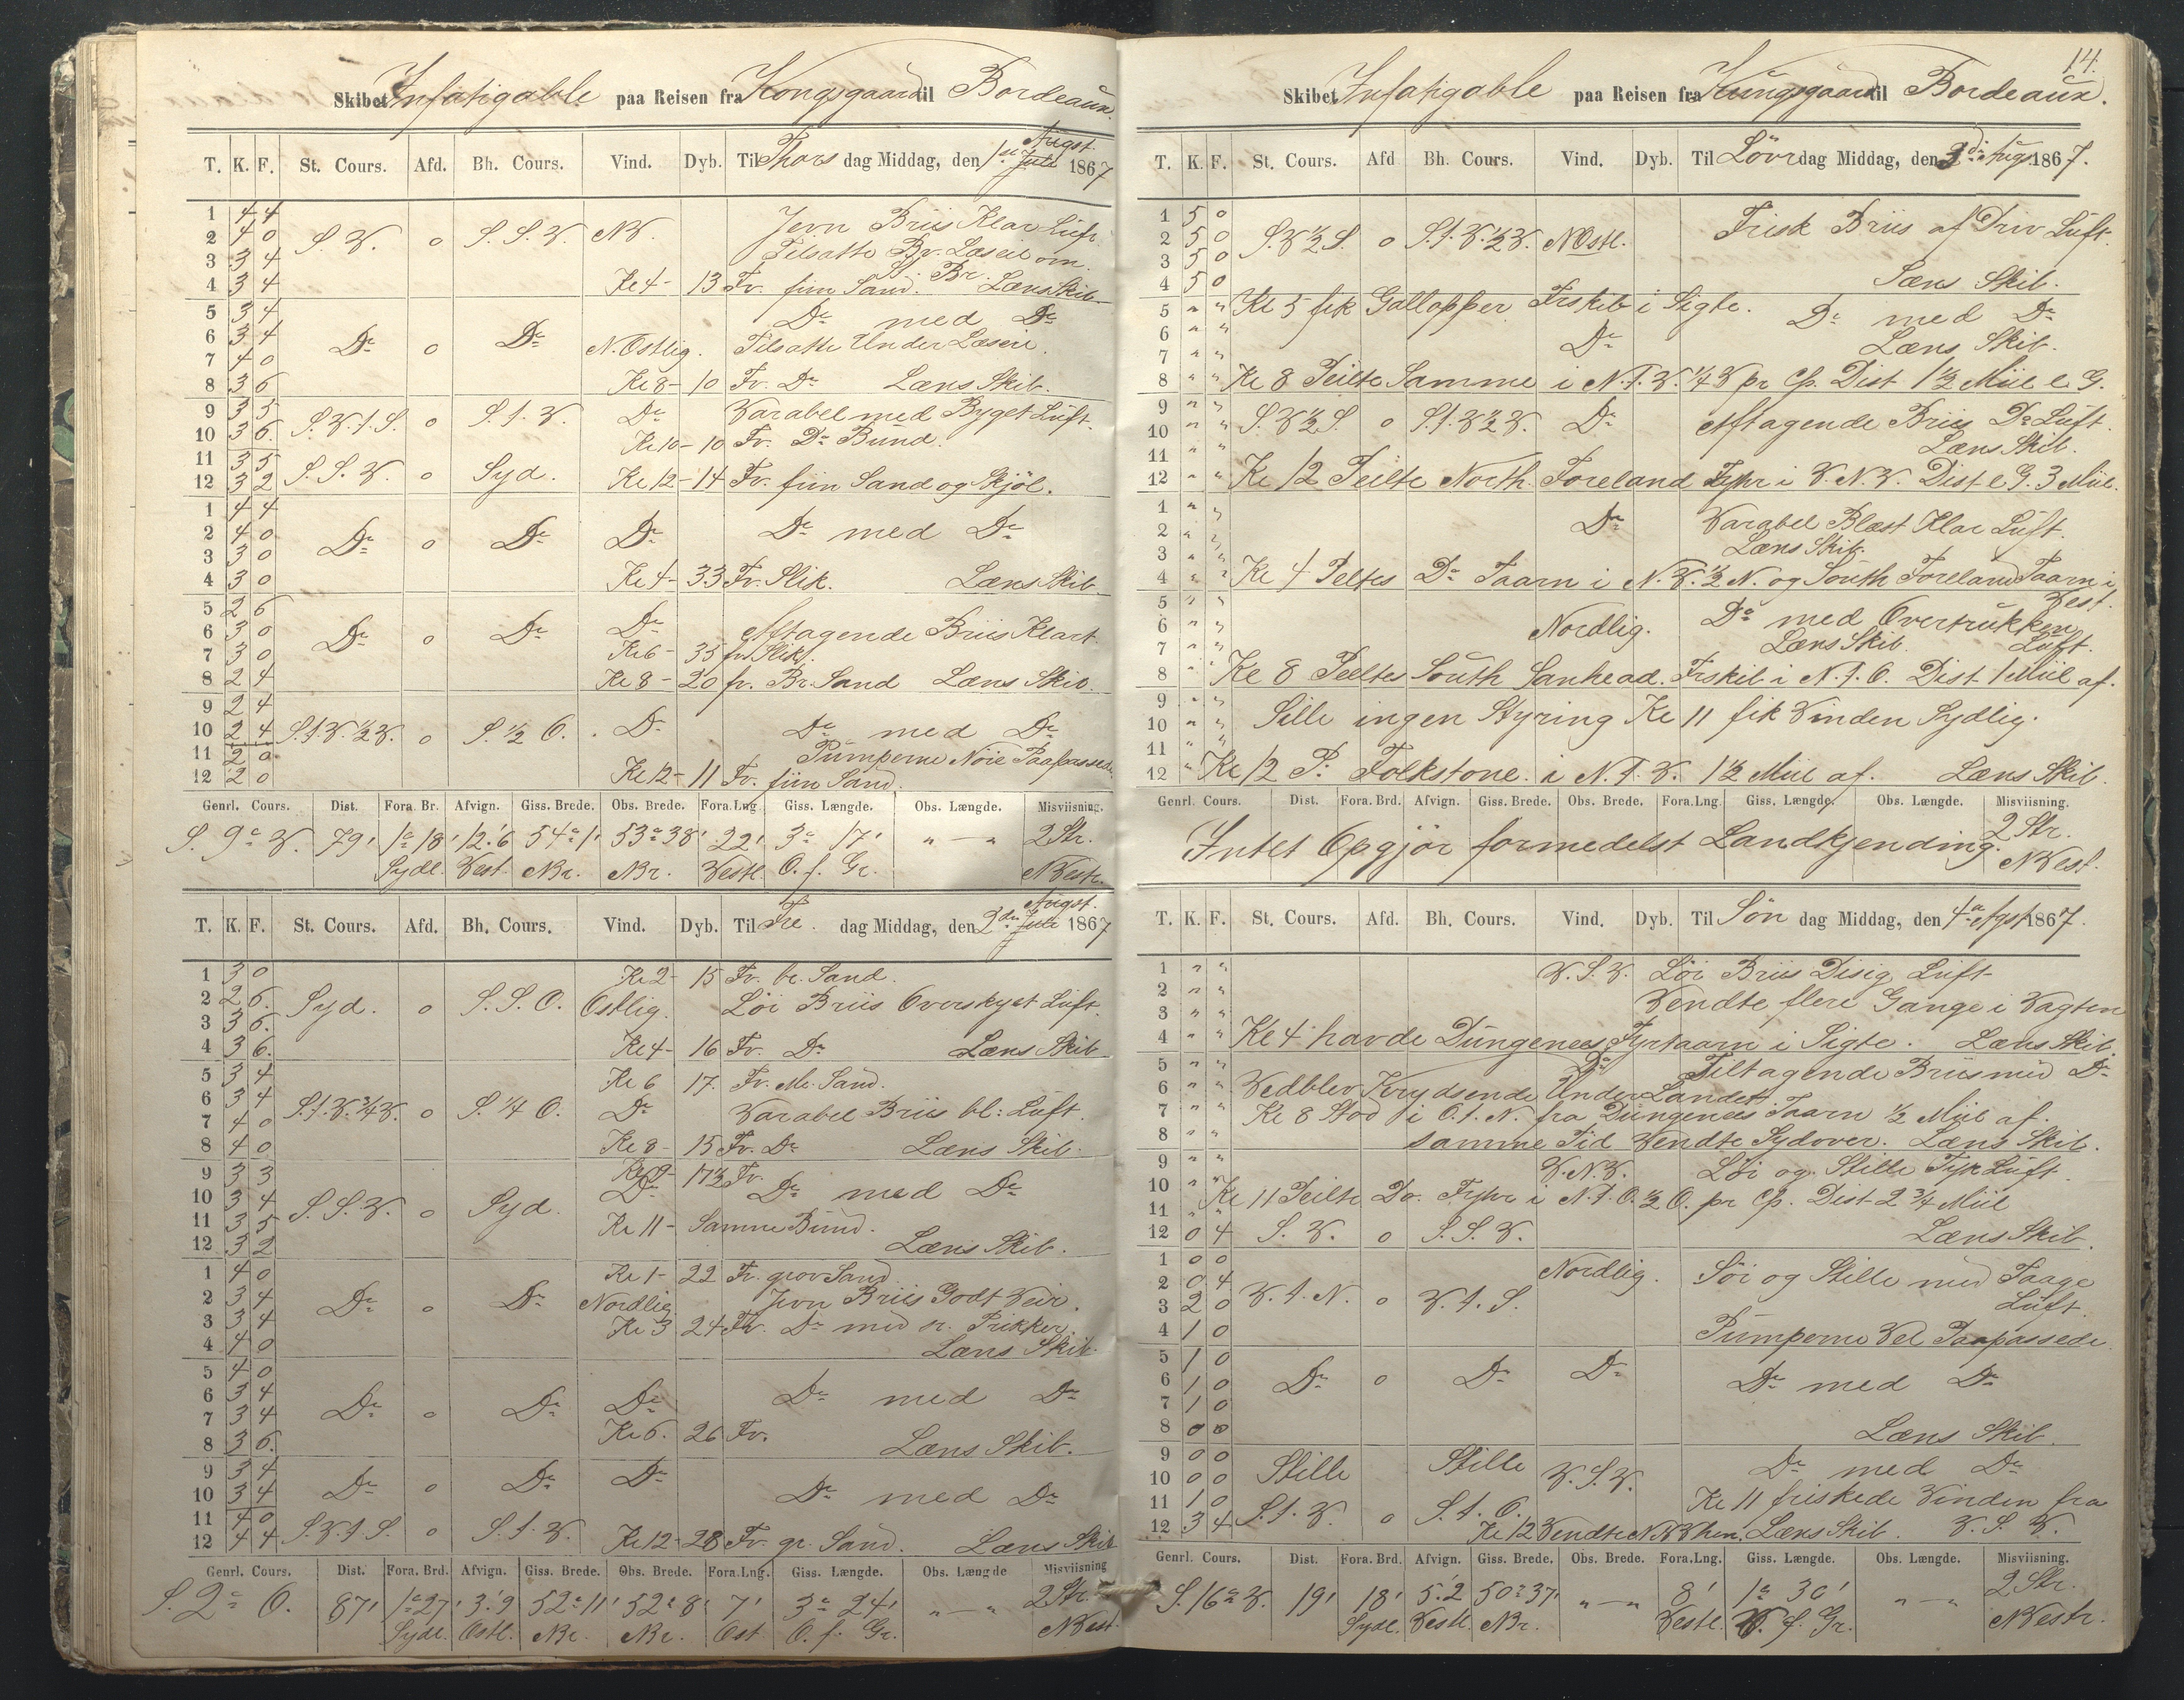 Skibet Infatigable paa Reisen fra Kongsgaard til Bordeaux.
T. K. F. St. Cours. Afd. Bh. Cours. Vind. Dyb. Til Thors dag Middag, den 1st Augst. Juli 1867
1 4 4 Jevn Briis Klar Luft
2 4 0 S.V. o S.S.V. NV. Tilsatte Br. Læseil om
3 3 4 S. Br.
4 3 4 Kl 4 - 13 Fv. fiin Sand. Læns Skib
5 3 4 Do med Do
6 3 4 Do o Do N.Ostlig. Tilsatte Under Læseil.
7 4 0
8 3 6 Kl 8 - 10 Fv. Do Læns Skib.
9 3 5 S.V.t.S. o S.t.V. Do Varabel med Byget Luft.
10 3 6. Kl 10 - 10 Fv. Do Bund.
11 3 5
12 3 2 S.S.V. o Syd. Kl 12 - 14 Fv. fiin Sand og Skjöl.
1 4 4
2 4 0 Do o Do Do Do med Do
3 3 0
4 3 0 Kl 4 - 33 Fv. Slik. Læns Skib
5 2 6
6 3 0 Do o Do Do Aftagende Briis Klart
7 3 0 Kl 6 - 35 fv. Slik.
8 2 4 Kl 8 - 20 fv. Br. Sand Læns Skib.
9 2 4
10 2 4 S.t.V.½V. o S.½ O. Do Do med Do
11 2 0 Pumperne Nöie Paapassede
12 2 0 Kl 12 - 11 Fv. fiin Sand.
Genrl. Cours. Dist. Fora. Br. Afvign. Giss. Brede. Obs. Brede. Fora. Lng. Giss. Længde. Obs. Længde. Misviisning.
S. 9° V. 79' 1° 18' 12.'6 54° 1' 53° 38' 22' 3° 17' " — " 2 Str.
Sydl. Vest. NBr. NBr. Vestl. O. f. Gr. NVestr.
T. K. F. St. Cours. Afd. Bh. Cours. Vind. Dyb. Til Fre. dag Middag, den 2den Augst. Juli 1867
1 3 0 Kl 2 - 15 Fv. br. Sand.
2 2 6. Syd. o S.S.O. Ostlig. Löi Briis Overskyet Luft.
3 3 6.
4 3 6. Kl 4 - 16 Fv. Do Læns Skib
5 3 4 Kl 6 17. Fv. Mr. Sand.
6 3 4 S.t.V.¾V. o S.¼ O. Do Varabel Briis bl: Luft.
7 4 0
8 4 0 Kl 8 - 15 Fv. Do Læns Skib.
9 3 3 Kl 9 - 17½ Fv.
10 3 4 S.S.V. o Syd. Do Do med Do
11 3 5 Kl 11 - Samme Bund.
12 3 2 Læns Skib.
1 4 0 Kl 1 - 22 Fv. grov Sand
2 3 4 Do o Do Nordlig. Jevn Briis Godt Veir.
3 3 4 Kl 3 24 Fv. Do med sr. Prikker
4 4 0 Læns Skib.
5 4 0
6 3 4 Do o Do Do Do med Do
7 3 4 Kl 6. 26 Fv.
8 3 6. Læns Skib.
9 3 4 Do o Do Do
10 3 4 Do med Do
11 4 0
12 4 4 S.V.t.S. o S.t.V. Kl 12 - 28 Fv. gr. Sand. Læns Skib
Genrl. Cours. Dist. Fora. Brd. Afvign. Giss. Brede. Obs. Brede. Fora. Lng. Giss. Længde. Obs. Længde Misviisning
S. 2° O. 87' 1° 27' 3.'9 52° 11' 52° 8' 7' 3° 24' " — " 2 Str.
Sydl. Ostl. NBr. NBr. Ost O. f. Gr. NVest
14.
Skibet Infatigable paa Reisen fra Kungsgaard til Bordeaux.
T. K. F. St. Cours. Afd Bh. Cours. Vind. Dyb. Til Löver dag Middag, den 3di Aug. 1867.
1 5 0 Frisk Briis af Driv Luft.
2 5 0 S.V½S. o S.t.V.½V. NOstl.
3 5 0
4 5 0 Læns Skib.
5 " " Kl 5 fik Gallopper Frskib i Sigte. Do med Do
6 " " Do Læns Skib.
7 " "
8 " " Kl 8 Peilte Samme i N.t.V.¼V pr Cp. Dist 1½ Miil e G.
9 " " S.V½S. o S.t.V½V. Do Aftagende Briis Do Luft.
10 " " Læns Skib.
11 " "
12 " " Kl 12 Peilte North. Foreland Fyhr i V.N.V. Dist e G. 3 Miil.
1 " " Do Varabel Blæst Klar Luft.
2 " " Læns Skib.
3 " "
4 " " Kl 4 Peltes Do Taarn i N.V.½N. og South Foreland Taarn i Vest.
5 " " Do med Overtrukken
6 " " Nordlig. Luft.
7 " " Læns Skib.
8 " " Kl 8 Peeltes South Sanhead. Frskib i N.t.O. Dist 1 Miil af.
9 " " Stille ingen Styring Kl 11 fik Vinden Sydlig.
10 " "
11 " "
12 " Kl 12 P: Folkstone i N.t.V. 1½ Miil af. Læns Skib.
Genrl. Cours. Dist. Fora. Brd. Afvign. Giss. Brede. Obs. Brede. Fora. Lng. Giss. Længde. Obs. Længde. Misviisning.
Intet Opgjör formedelst Landkjending. 2 Str.
NVest.
T. K. F. St. Cours. Afd. Bh. Cours. Vind. Dyb. Til Sön dag Middag, den 4de Agst 1867.
1 " " V.S.V. Löi Briis Disig Luft
2 " " Vendte flere Gange i Vagten
3 " "
4 " " Kl 4 havde Dungenees Fyrtaarn i Sigte. Læns Skib.
5 " " Do Tiltagende Briis med Do
6 " " Vedblev Krydsende Under Landet
7 " " Kl 8 Stod i O.t.N. fra Dungenees Taarn ½ Miil af.
8 " " samme Tid Vendte Sydover. Læns Skib.
9 " " V.N.V. Löi og Stille Tyk Luft.
10 " " Kl 11 Peilte Do. Fyhr i N.t.O.½O. pr Cp. Dist 2¾ Miil
11 " "
12 0 4 S.V. o S.S.V. Læns Skib.
1 0 0 Nordlig. Löi og Stille med Taage
2 0 4 V.t.N. o V.t.S. Luft.
3 2 0
4 1 0 Pumperne Vel Paapassede
5 1 0
6 1 0 Do o Do Do Do med Do
7 1 0
8 0 0 Læns Skib.
9 0 0 Stille Stille V.S.V. Do med Do
10 0 0
11 1 0 S.t.V. o S.t.O. Kl 11 friskede Vinden fra
12 3 4 Kl 12 Vendte NVhen. Læns Skib. V.S.V.
Genrl. Cours. Dist. Fora. Brd. Afvign. Giss. Brede. Obs. Brede. Fora. Lng. Giss. Længde. Obs. Længde. Misviisning.
S. 16° V. 19' 18' 5.'2 50° 37' " — " 8' 1° 30' " — " 2 Str.
Sydl. Vestl. NBr. Vestl. O. f. Gr. NVestr.